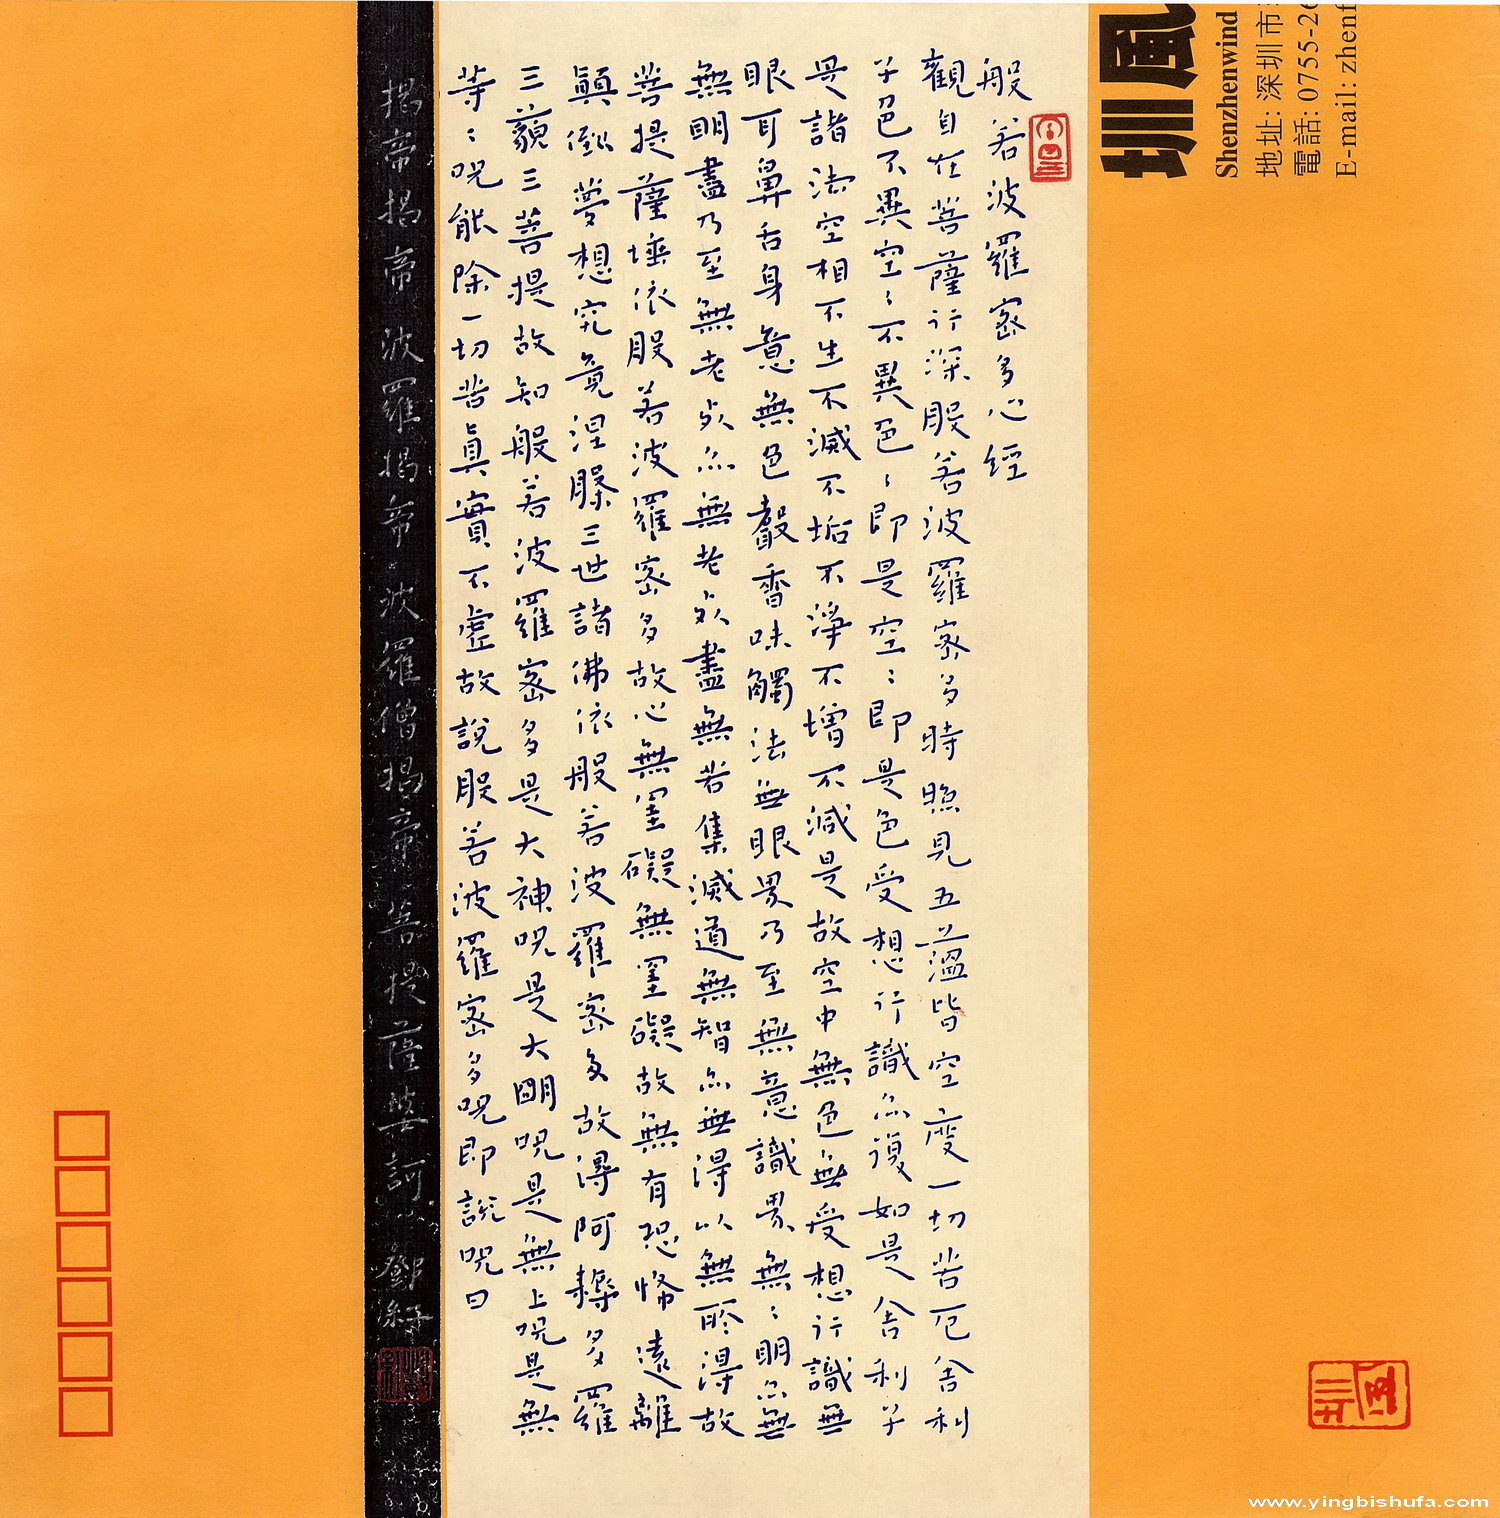 圳風
Shenzhenwind
地址: 深圳市
電話: 0755-26
E-mail: zhenf
般若波羅密多心經
觀自在菩薩行深般若波羅密多時照見五蘊皆空度一切苦厄舍利
子色不異空〻不異色〻即是空〻即是色受想行識亦復如是舍利子
是諸法空相不生不滅不垢不淨不增不減是故空中無色無受想行識無
眼耳鼻舌身意無色聲香味觸法無眼界乃至無意識界無〻明亦無
無明盡乃至無老死亦無老死盡無苦集滅道無智亦無得以無所得故
菩提薩埵依般若波羅密多故心無罣礙無罣礙故無有恐怖遠離
顛倒夢想究竟涅槃三世諸佛依般若波羅密多故得阿耨多羅
三藐三菩提故知般若波羅密多是大神咒是大明咒是無上咒是無
等〻咒能除一切苦真實不虛故說般若波羅密多咒即說咒曰
揭帝揭帝波羅揭帝波羅僧揭帝菩提薩婆訶 鄧
圳風
www.yingbishufa.com